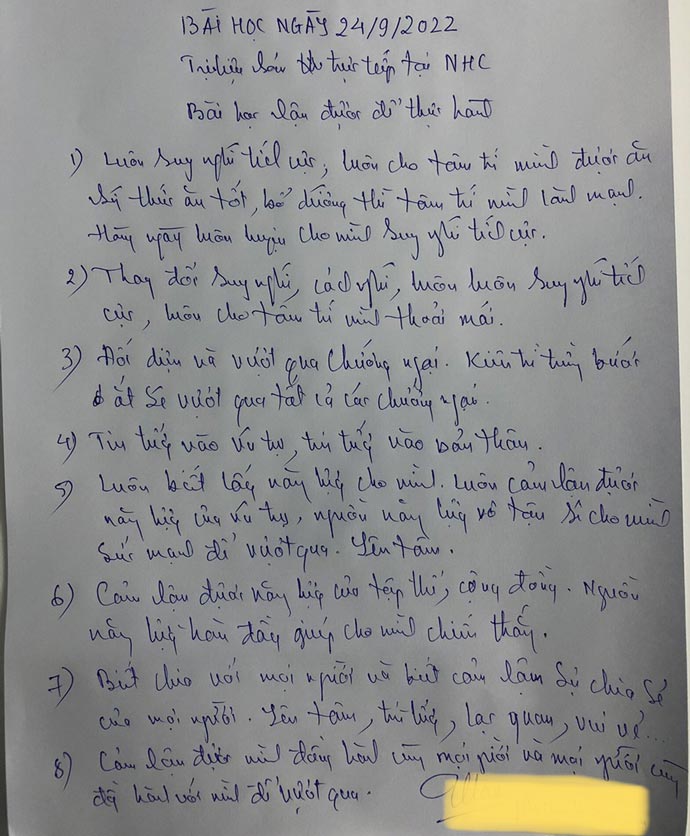 BÀI HỌC NGÀY 24/9/2022
Trị liệu sáu trực tiếp tại NHC
Bài học lận được để thực hành
1) Luôn suy nghĩ tích cực, luôn cho tâm trí mình được ăn
thức ăn tốt, bổ dưỡng thì tâm trí mình lành mạnh.
Hàng ngày luôn luyện cho mình suy nghĩ tích cực.
2) Thay đổi suy nghĩ, cách nghĩ, luôn luôn suy nghĩ tích
cực, luôn cho tâm trí mình thoải mái.
3) Đối diện và vượt qua chướng ngại. Kiên trì từng bước
ắt sẽ vượt qua tất cả các chướng ngại.
4) Tin tưởng vào vũ trụ, tin tưởng vào bản thân.
5) Luôn biết lấy năng lượng cho mình. Luôn cảm lận được
năng lượng của vũ trụ, nguồn năng lượng vô tận sẽ cho mình
sức mạnh để vượt qua. Yên tâm.
6) Cảm lận được năng lượng của tập thể, cộng đồng. Nguồn
năng lượng tràn đầy giúp cho mình chiến thắng.
7) Biết chia với mọi người và biết cảm lậm sự chia sẻ
của mọi người. Yên tâm, tin tưởng, lạc quan, vui vẻ...
8) Cảm lận được mình đồng hành cùng mọi người và mọi người cùng
đg hành với mình để vượt qua.